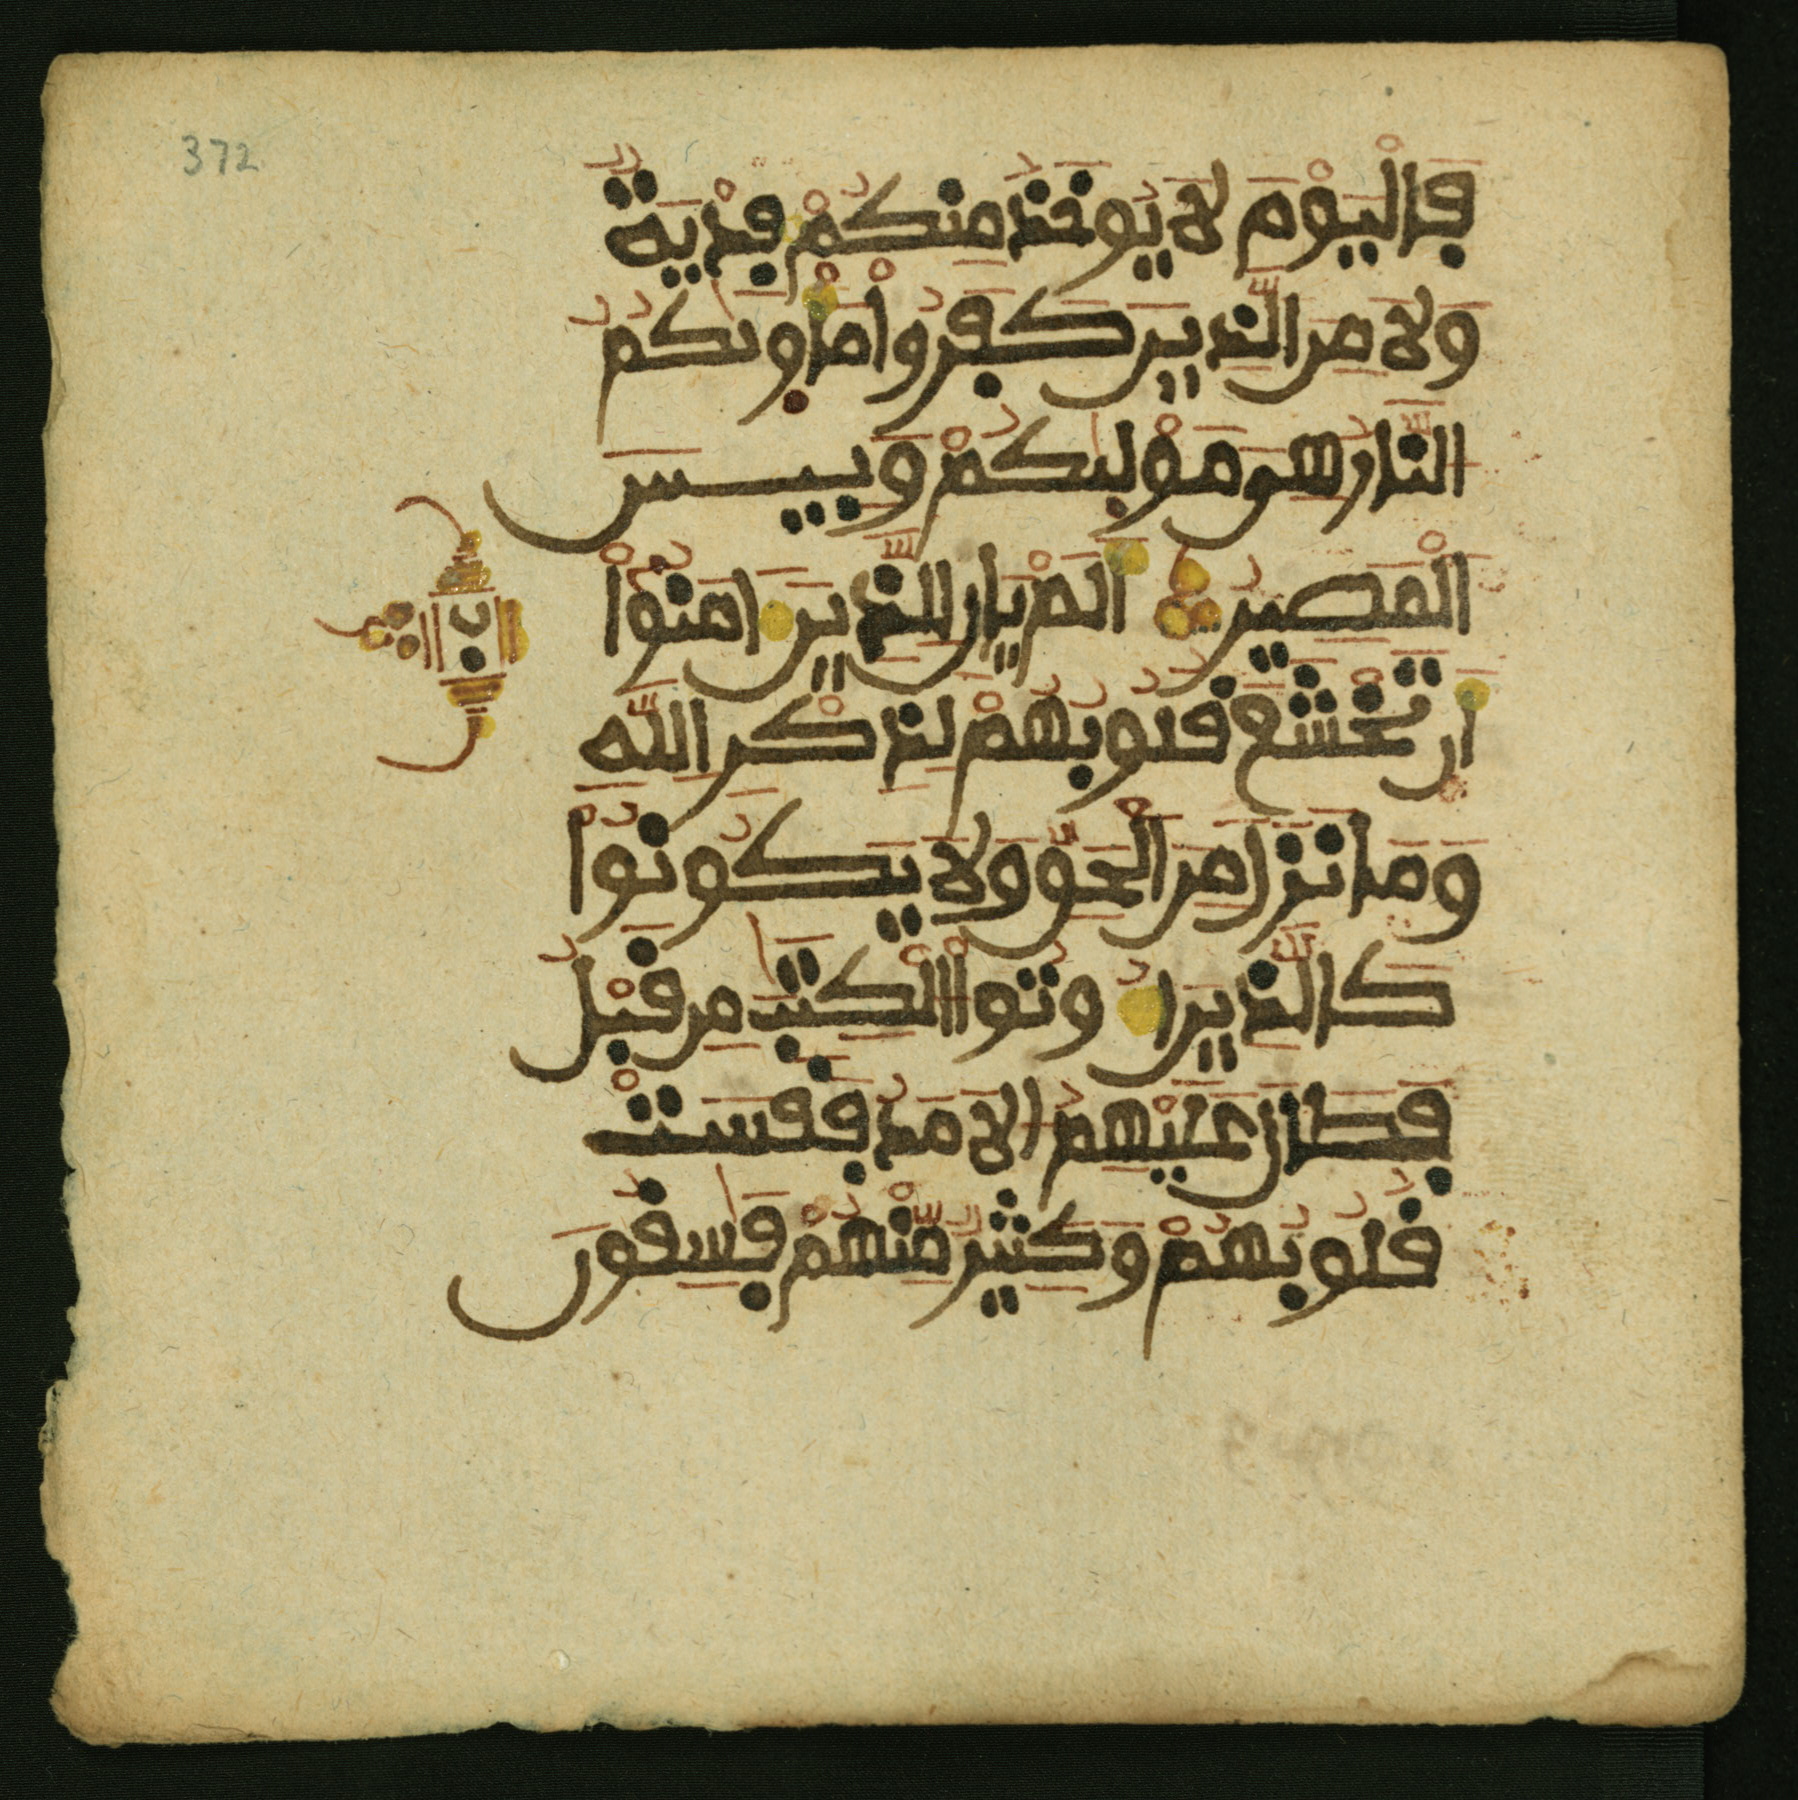 372
فَالْيَوْمَ لَا يُوخَذُ مِنكُمْ فِدْيَةٌ
وَلَا مِنَ الَّذِينَ كَفَرُواْ مَأْوٰىكُمُ
النَّارُ هِىَ مَوْلٰىكُمْ وَبِيسَ
الْمَصِيرُ اَلَمْ يَانِ لِلَّذِينَ ءَامَنُوٓاْ
أَن تَخْشَعَ قُلُوبُهُمْ لِذِكْرِ اللَّهِ
وَمَا نَزَلَ مِنَ الْحَقِّ وَلَا يَكُونُواْ
كَالَّذِينَ أُوتُواْ الْكِتَٰبَ مِن قَبْلُ
فَطَالَ عَلَيْهِمُ الَامَدُ فَقَسَتْ
قُلُوبُهُمْ وَكَثِيرٌ مِّنْهُمْ فَٰسِقُونَ